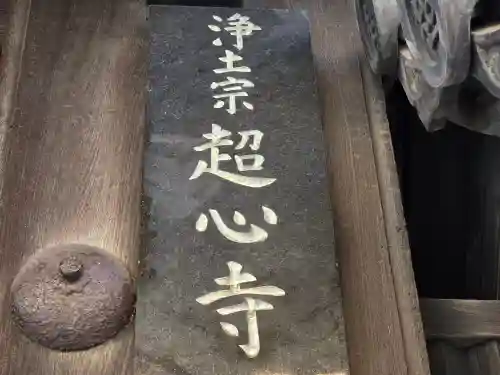 浄土宗超心寺